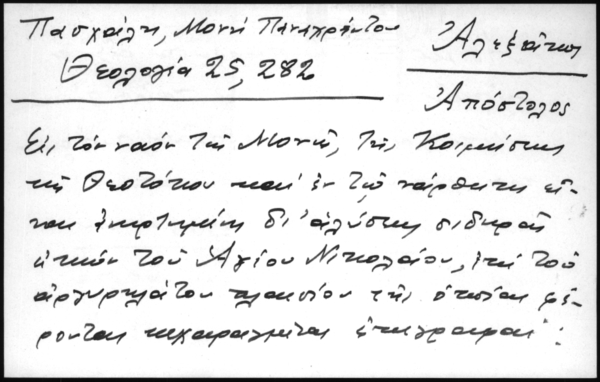 Πασχάλη, Μονή Παναχράντου
Θεολογία 25, 282
Ἀλεξάκης
Ἀπόστολος
Εἰς τόν ναόν τῆς Μονῆς, τῆς Κοιμήσεως
τῆς Θεοτόκου καί ἐν τῷ νάρθηκι εἶ-
ναι ἀνηρτημένη δι' ἁλύσεως σιδηρᾶς
εἰκών τοῦ Ἁγίου Νικολάου, ἐπί τοῦ
ἀργυρηλάτου πλαισίου τῆς ὁποίας φέ-
ρονται κεχαραγμέναι ἐπιγραφαί :